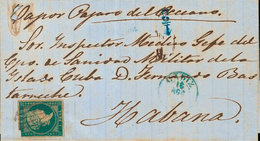 Vapor Pajaro del Oceano.
Sor. Inspector Medico Gefe del
Cpo. de Sanidad Militar de la
Ysla de Cuba D. Fernando Bas
tarreche.
Habana
CADIZ